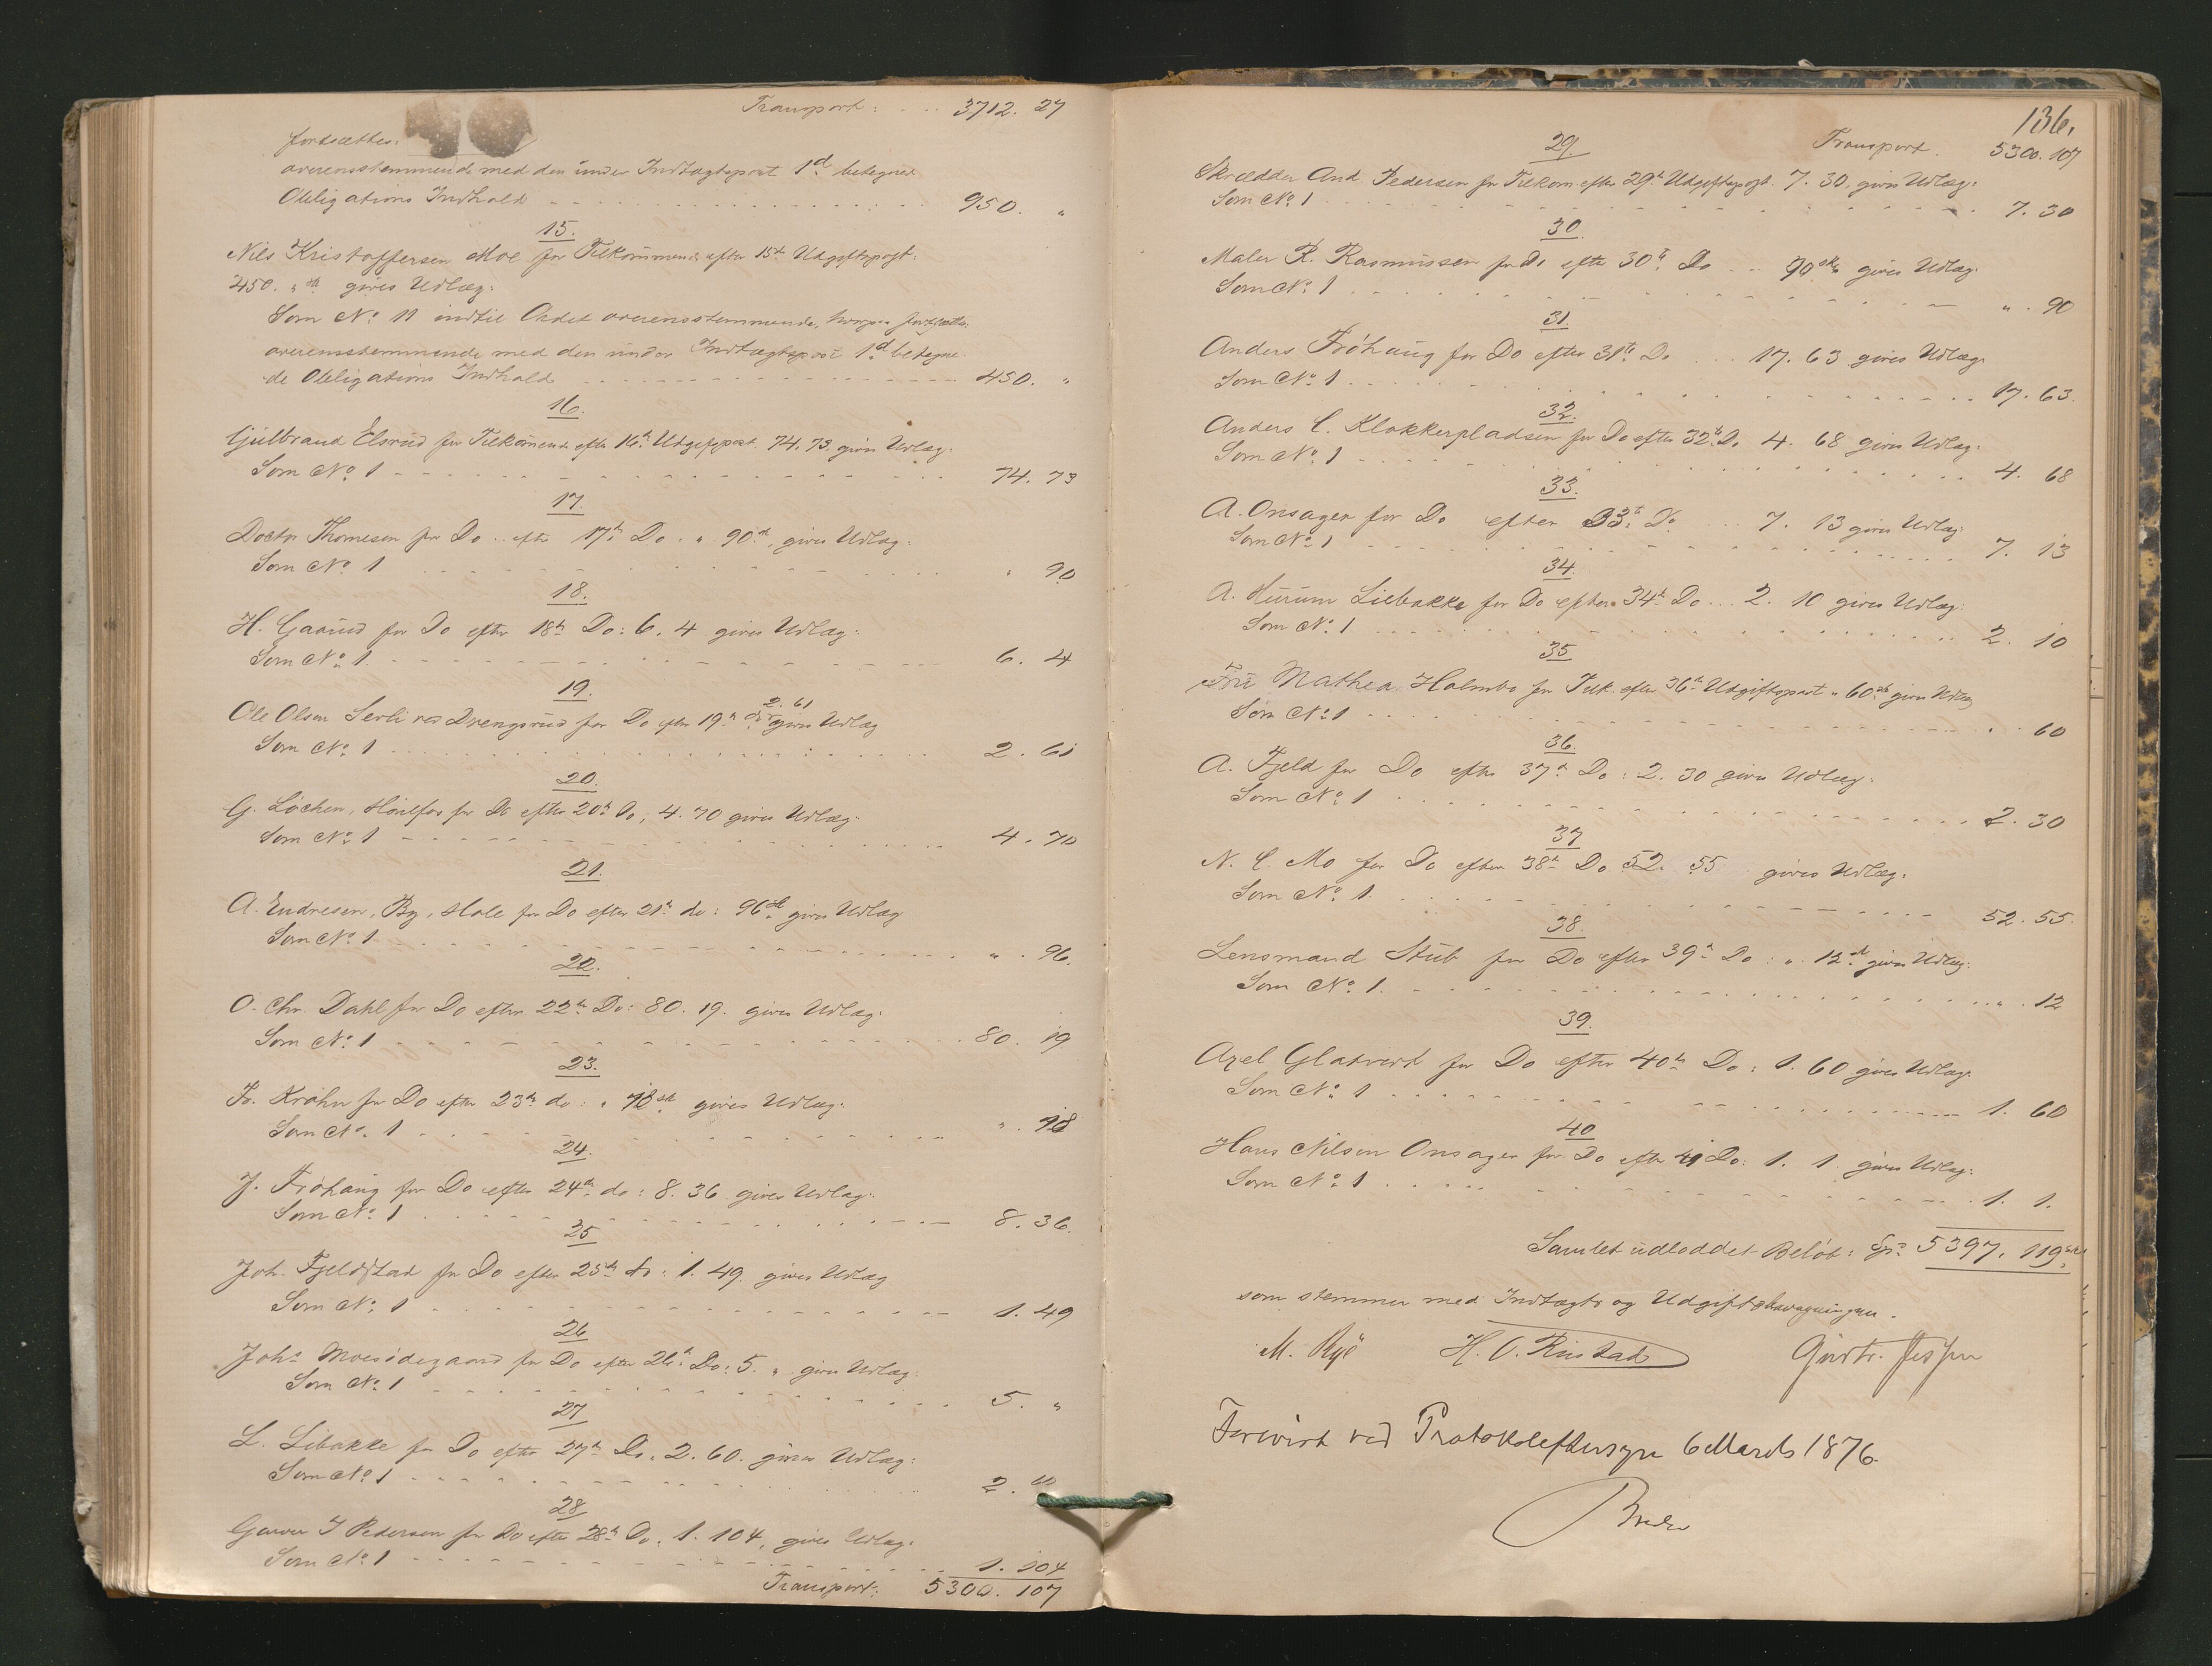 Transport: . . . 3712. 27
fortsættes:
overensstemmende med den under Indtægtspost 1d betegnet
Obligations Indhold 950. "
15.
Nils Kristoffersen Moe for Tilkommende efter 15de Udgiftspost:
450. " sk gives Udlæg:
Som No 11 indtil Ordet overensstemmende, fortsættes
overensstemmende med den under Indtægtspost 1d betegne
de Obligations Indhold 450. "
16.
Gulbrand Elsrud for Tilkommende efter 16de Udgiftspost 74. 73 gives Udlæg:
Som No 1 74. 73
17.
Doctor Thomesen for Do efter 17de Do. " 90 sk, gives Udlæg:
Som No 1 " 90
18.
H. Gaarud for Do efter 18de Do: 6. 4 gives Udlæg:
Som No 1. 6. 4
19.
Ole Olsen Serli ved Drengsrud for Do efter 19de do 2. 61 gives Udlæg
Som No 1 2. 61
20.
G. Løchen, Hønefos for Do efter 20de Do, 4. 70 gives Udlæg:
Som No 1 4. 70
21.
A. Endresen, By, Hole for Do efter 21de do: 96 sk gives Udlæg
Som No 1 " . 96.
22.
O. Chr. Dahl for Do efter 22de Do: 80. 19. gives Udlæg:
Som No 1 80. 19
23.
Fr. Krohn for Do efter 23de do: " 18 sk gives Udlæg:
Som No 1 " . 18
24.
J. Frøhaug for Do efter 24de do: 8. 36 gives Udlæg:
Som No 1 8. 36.
25
Joh. Fjeldstad for Do efter 25de do: 1. 49. gives Udlæg
Som No 1 1. 49
26
Johs Moesødegaard for Do efter 26de Do: 5. " gives Udlæg:
Som No 1 5. "
27
L. Libakke for Do efter 27de Do. 2. 60. gives Udlæg:
Som No 1 2. 60
28
Garver J Pedersen for Do efter 28de Do. 1. 104, gives Udlæg:
Som No 1 1. 104
Transport: 5300. 107
136.
29. Transport. 5300. 107
Skrædder And. Pedersen for Tilkom. efter 29de Udgiftspost 7. 30, gives Udlæg:
Som No 1 7. 30
30.
Maler R. Rasmussen for Do efter 30te Do 90 sk gives Udlæg:
Som No 1 " . 90
31.
Anders Frøhaug for Do efter 31te Do 17. 63 gives Udlæg
Som No 1 17. 63.
32.
Anders C. Klokkerpladsen for Do efter 32te Do 4. 68 gives Udlæg:
Som No 1 4. 68
33.
A. Onsager for Do efter 33te Do 7. 13 gives Udlæg:
Som No 1 7. 13
34.
A. Hurum Liebakke for Do efter 34de Do 2. 10 gives Udlæg:
Som No 1 2. 10
35
Fru Mathea Holmbo for Tilk. efter 36te Udgiftspost " 60 sk gives Udlæg
Som No 1 " 60
36.
A. Fjeld for Do efter 37de Do: 2. 30 gives Udlæg:
Som No 1 2. 30
37
N. C. Mo for Do efter 38de Do 52. 55 gives Udlæg:
Som No 1. 52. 55.
38.
Lensmand Stub for Do efter 39de Do: " 12 sk gives Udlæg:
Som No 1. " . 12
39.
Axel Glatved for Do efter 40de Do: 1. 60 gives Udlæg:
Som No 1 1. 60
40
Hans Nilsen Onsager for Do efter 41 Do: 1. 1 gives Udlæg:
Som No 1 1. 1.
Samlet udloddet Beløb: Spd 5397. 119 sk
som stemmer med Indtægts og Udgiftsberegningen.
M. Rye H. O. Rustad Gustv. Jessen
Forevist ved Protokoleftersyn 6 Marts 1876.